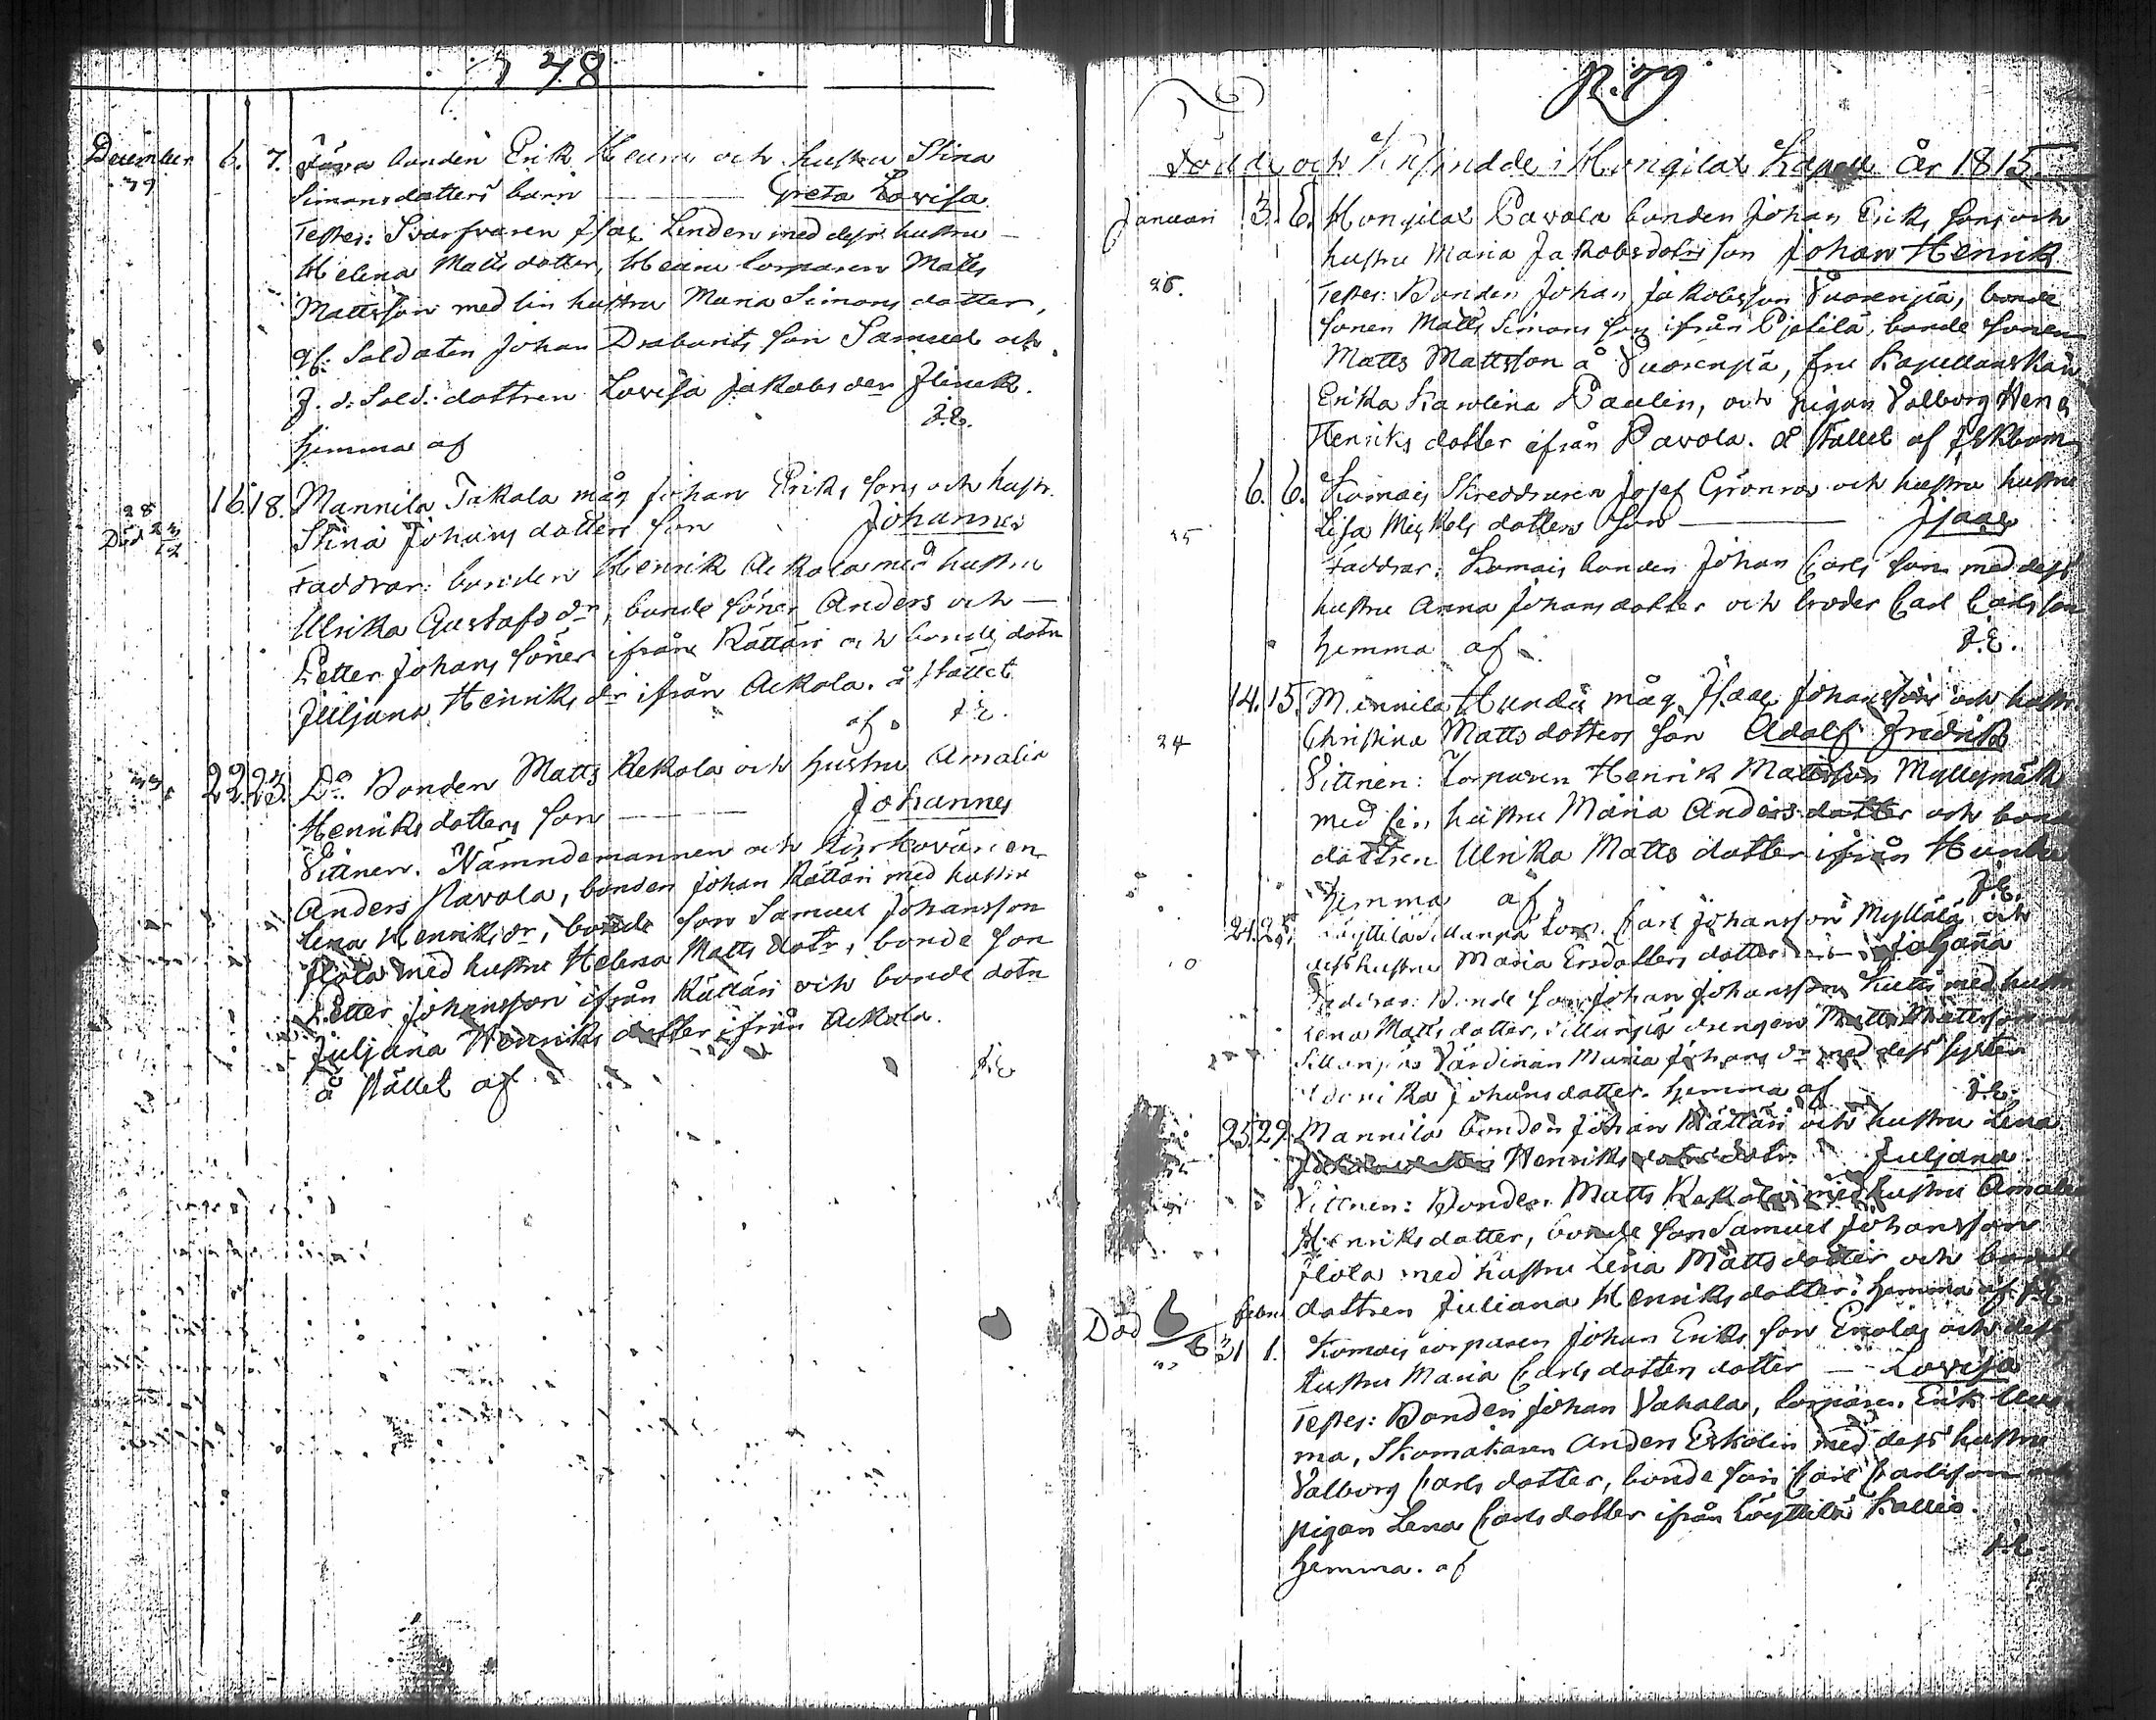 78
December 6. 7. Jäva bonden Erik Heurn och hustru Stina
39 Simonsdotters barn — Greta Lovisa
Testes: Svarfvaren Isac Linden med dess hustru
Helena Matts dotter, torparen Matts
Mattsson med sin hustru Maria Simons dotter,
gf. Soldaten Johan Drabants son Samuel och
f. d. Sold. dottren Lovisa Jakobs dr Flinck.
hemma af J.E.
16. 18. Mannila Takala måg Johan Eriks sons och hustr.
28 Stina Johans dotters son Johannes
Död 23/12
Faddrar: bonden Henrik Ackola med hustru
Ulrika Gustafs dr, bonde söner Anders och
Petter Johans söner ifrån Rättäri och bonde dotn
Juljana Henriks dr ifrån Ackola. å stället
af J.E.
22. 23. Do Bonden Matts Rekola och hustru Amalia
Henriks dotters son — Johannes
Vittnen. Nämndemannen och Kyrkovärden
Anders Pavola, bonden Johan Rättäri med hustru
Lena Henriks dr, bonde son Samuel Johansson
Flola med hustru Helena Matts dotr, bonde son
Petter Johansson ifrån Rättäri och bonde dotn
Juljana Henriks dotter ifrån Ackola.
å stället af J.E.
p. 79
Födde och i Hongilax Kapell År 1815.
Januari 3. 6. Hongilax Pavola bonden Johan Eriks sons och
hustru Maria Jakobsdotrs son Johan Henrik
26. Testes: Bonden Johan Jakobsson Vuorenpä, bonde
sonen Matts Simons son ifrån Pjetilä, bonde sonen
Matts Mattsson å Vuorenpä, fru Kapellanskan
Erika Karolina Paulin, och pigan Valborg
Henriks dotter ifrån Pavola. å stallet af
6. 6. Komais Skreddraren Josef Grönros och hustru hustru
Lisa Mickels dotters son — Isaac
35
Faddrar: Komais bonden Johan Carls son med dess
hustru Anna Johans dotter och broder Carl Carlsson
hemma af J.E.
14. 15. Mannila Hundis måg Isaac Johanssons och hustr.
Christina Matts dotters son Adolf Fredrik
24
Vittnen: Torparen Henrik Mattsson Myllymäki
med sin hustru Maria Anders dotter och bonde
dottren Ulrika Matts dotter ifrån
hemma af J.E.
24. 25. Carl Johanssons Myllälä och
dess hustru Maria Ersdotters dotter — Johanna
Faddrar: Bonde son Johan Johansson med hustru
Lena Matts dotter, drengen Matts Mattsson
Värdinnan Maria Johans dr med dess syster
Johansdotter. hemma af J.E.
25. 29. Mannila bonden Johan Rättäri och hustru Lena
Henriks dotrs dotr. Juljana
Vittnen: Bonden Matts Rekola med hustru Amalia
Henriksdotter, bonde son Samuel Johansson
Flola med hustru Lena Matts dotter och bonde
febr. dottren Juliana Henriks dotter. hemma af J.E.
Död 6 31 1. Komais torparen Johan Eriks son Enolas och dess
hustru Maria Carls dotters dotter — Lovisa
Testes: Bonden Johan Vahala, torparen Erik
ma, Skomakaren Anders Eskolin med dess hustru
Valborg Carls dotter, bonde son Carl Carlsson
pigan Lena Carls dotter ifrån Löyttilä Kallio.
hemma. af J.E.